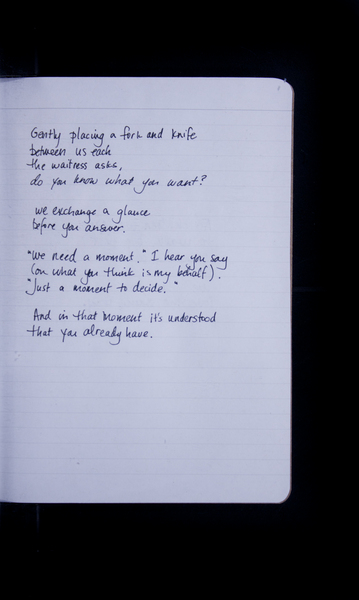 Gently placing a fork and knife
between us each
the waitress asks,
do you know what you want?
we exchange a glance
before you answer.
"We need a moment." I hear you say
(on what you think is my behalf).
"Just a moment to decide."
And in that moment it's understood
that you already have.